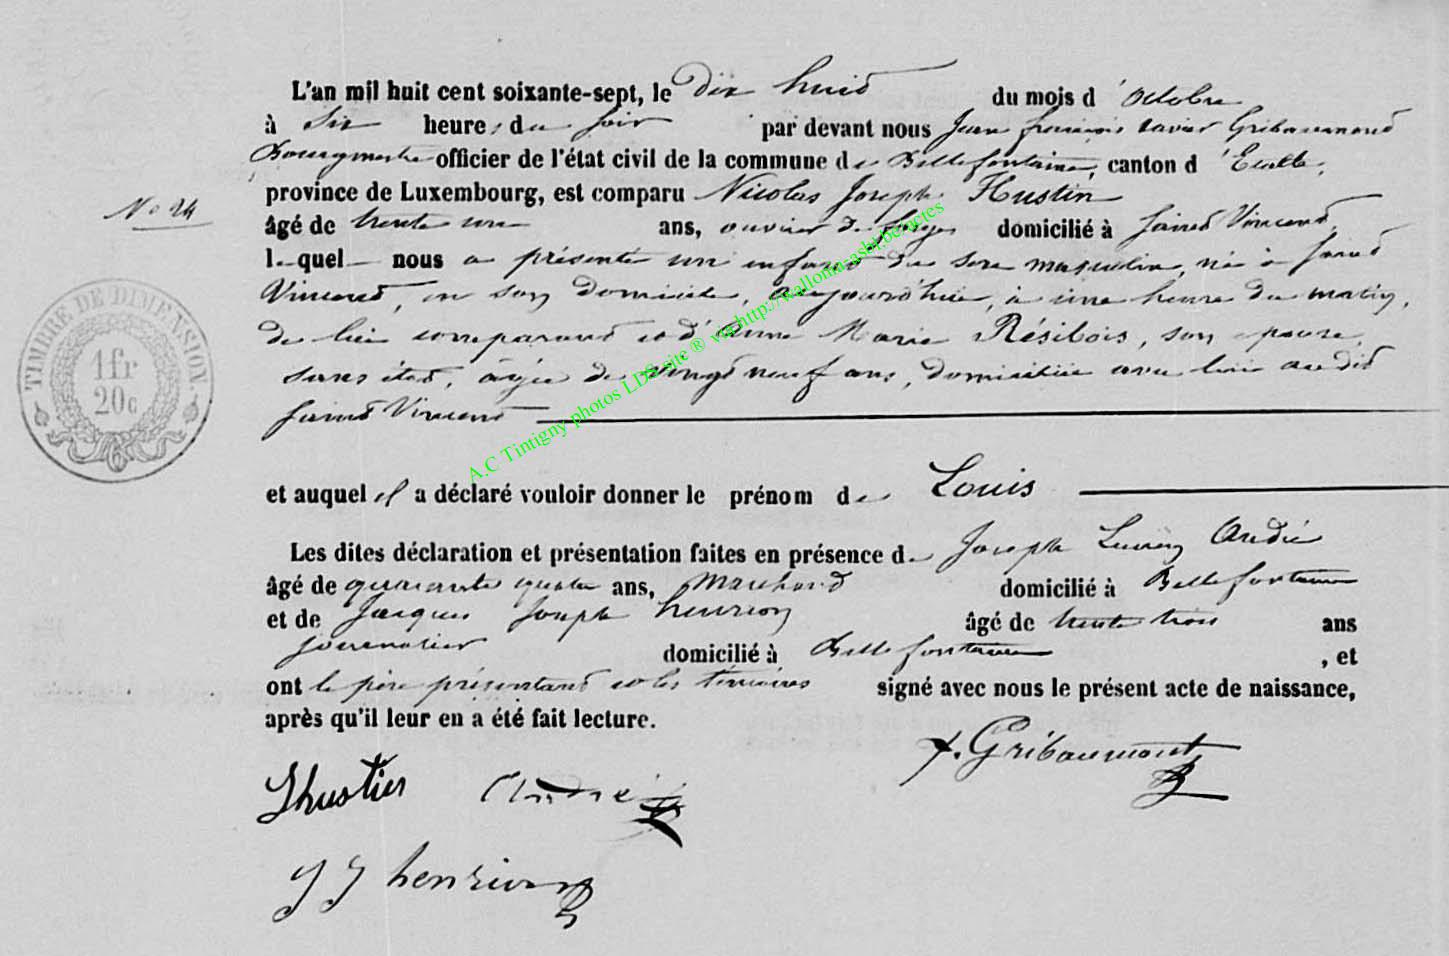 L'an mil huit cent soixante-sept, le dix huit du mois d'octobre
à six heures du soir par devant nous Jean françois xavier Gribaumont
Bourgmestre officier de l'état civil de la commune de Bellefontaine, canton d'Etalle,
province de Luxembourg, est comparu Nicolas Joseph Hustin
No 24
âgé de trente un ans, ouvrier de forges domicilié à Saint Vincent,
lequel nous a présenté un enfant du sexe masculin, né à Saint
Vincent, en son domicile, aujourd'hui, à une heure du matin,
de lui comparant et d'Anne Marie Résibois, son epouse,
sans état, âgée de vingt neuf ans, domiciliée avec lui audit
Saint Vincent
TIMBRE DE DIMENSION.
1fr
20c
A.C Tintigny photos LDS site ® via http://wallonia-asbl.be/actes
et auquel il a déclaré vouloir donner le prénom de Louis
Les dites déclaration et présentation faites en présence de Joseph André
âgé de quarante quatre ans, marchand domicilié à Bellefontaine
et de Jacques Joseph henrion âgé de trente trois ans
journalier domicilié à Bellefontaine, et
ont le père présentant et les témoins signé avec nous le présent acte de naissance,
après qu'il leur en a été fait lecture.
x. Gribaumont
André
J J henrion